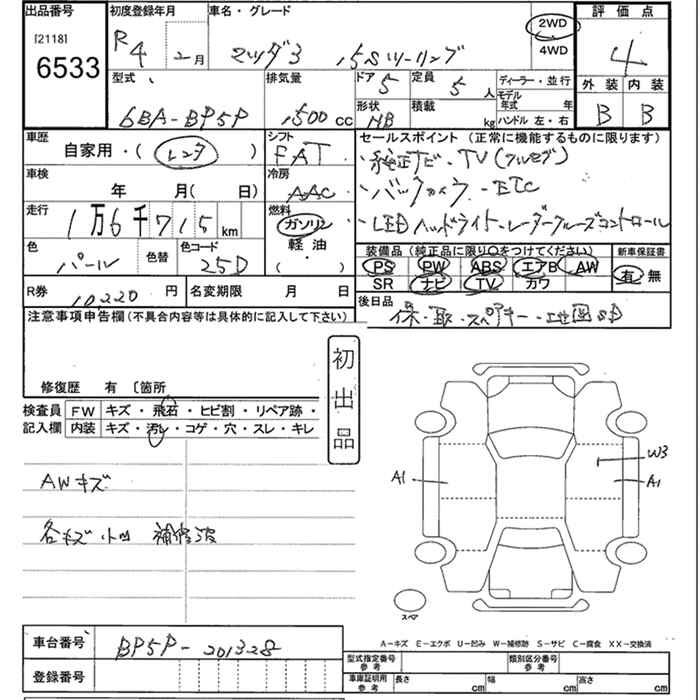 出品番号 初度登録年月 車名・グレード 評価点
[2118] 6533
R4 2月 マツダ3 15Sツーリング 2WD 4WD 4
型式 排気量 ドア 定員 ディーラー・並行 外装 内装
5 5人 モデル年式 年 B B
6BA-BP5P 1500cc 形状 HB 積載 kg ハンドル 左・右
車歴 シフト セールスポイント (正常に機能するものに限ります)
自家用・(レンタ) FAT ・純正ナビ・TV(フルセグ)
車検 冷房 ・バックカメラ・ETC
年 月(日) AAC
走行 燃料 ・LEDヘッドライト・レーダークルーズコントロール
1万6千715km ガソリン
色 色替 色コード 軽油・ 装備品(純正品に限り〇をつけてください) 新車保証書
パール 25D ( ) PS PW ABS エアB AW 有 無
SR ナビ TV カワ
R券 10220円 名変期限 月 日 後日品
保・取・スペアキー・地図SD
注意事項申告欄(不具合内容等は具体的に記入して下さい)
修復歴 有 〔箇所
初出品
検査員記入欄 FW キズ・飛石・ヒビ割・リペア跡・
内装 キズ・汚レ・コゲ・穴・スレ・キレ
AWキズ
各キズ 小凹 補修波
A1 W3 A1
スペア
A-キズ E-エクボ U-凹み W-補修跡 S-サビ C-腐食 XX-交換済
車台番号 BP5P-201328
型式指定番号参考 類別区分番号参考
登録番号
車庫証明用参考 長さ cm 幅 cm 高さ cm